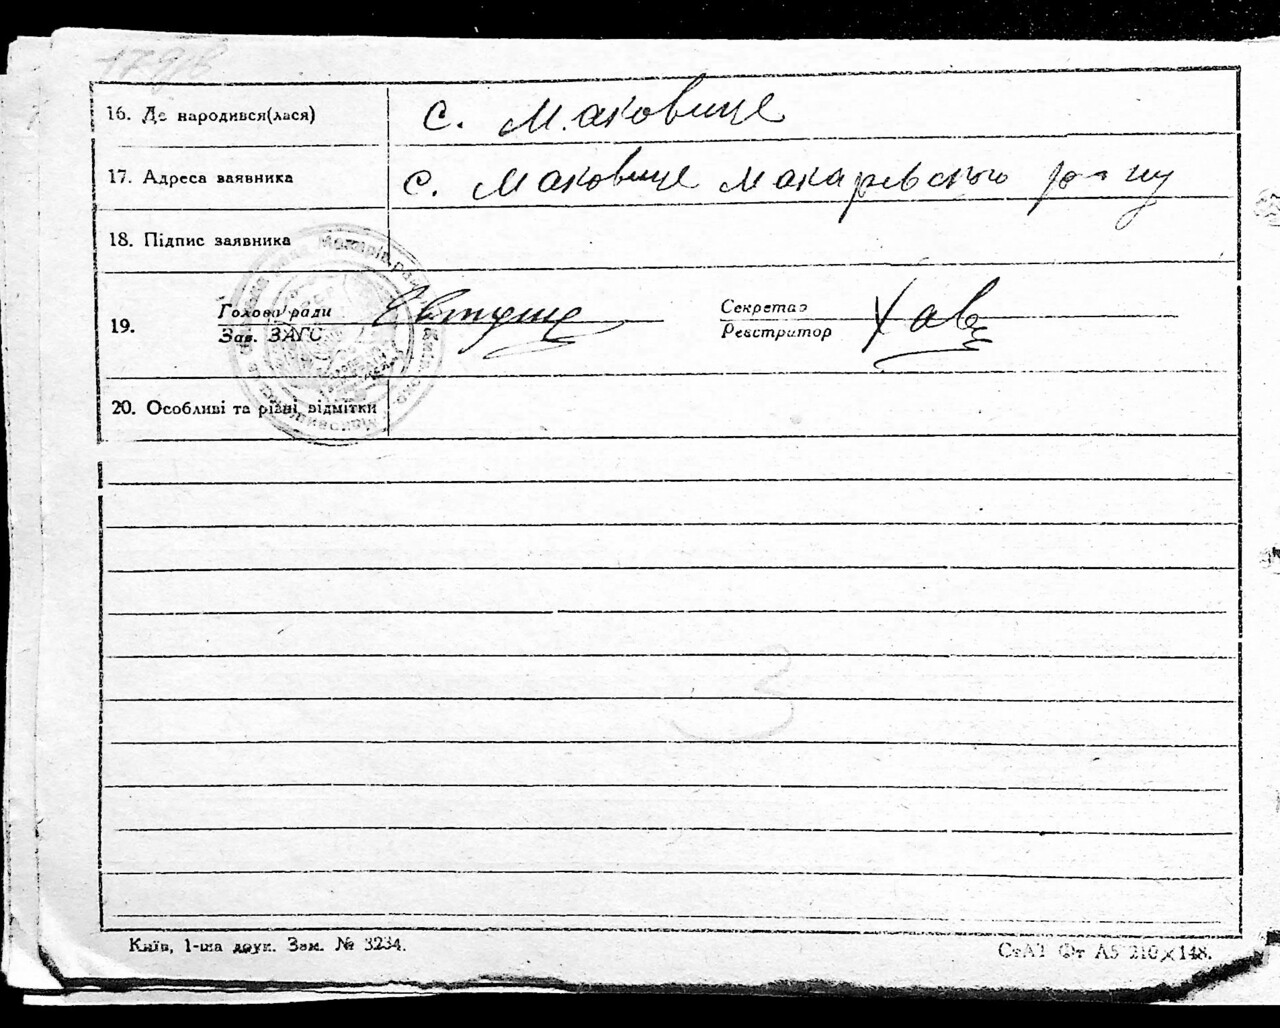 16. Де народився(лася) с. Маковище
17. Адреса заявника с. Маковище Макарівського р-ну
18. Підпис заявника
19. Голова ради
Зав. ЗАГС
Секретар
Реєстратор
20. Особливі та різні відмітки
Київ, 1-ша друк. Зам. № 3234.
СтАТ Фт А5 210×148.